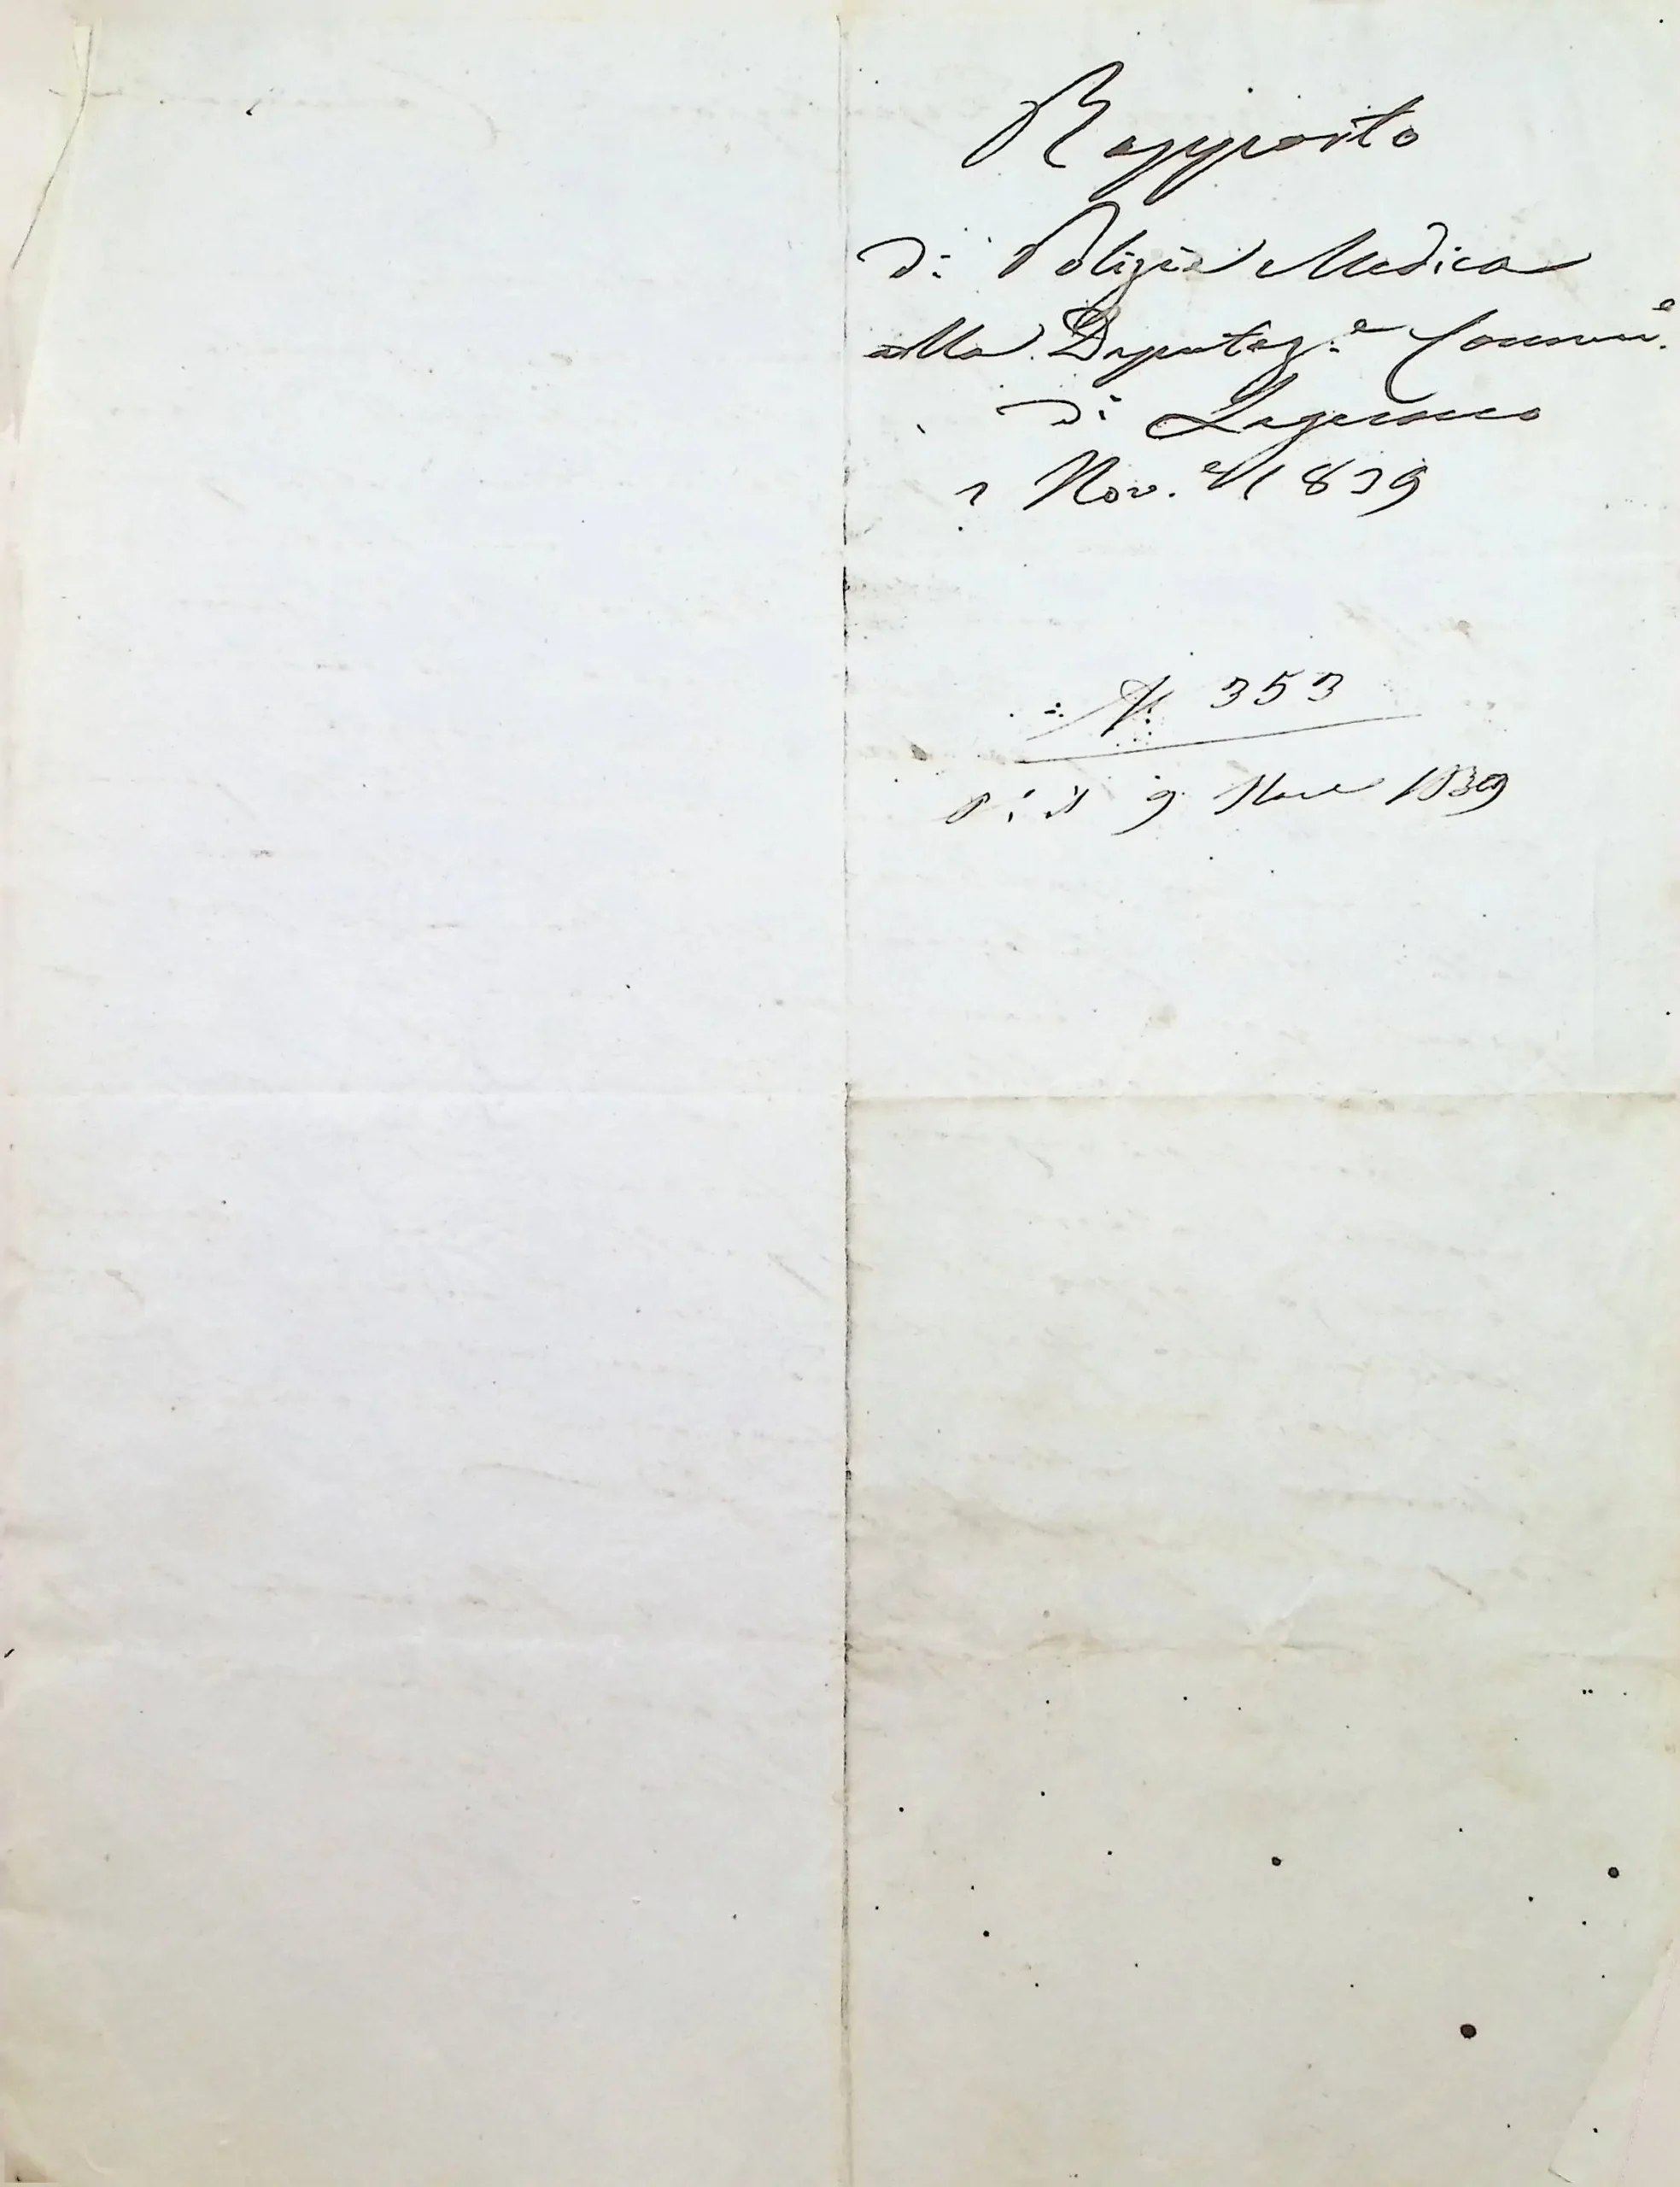 Rapporto
di Polizia Medica
alla Deputaz.e Comun.e
di
Nov.e 1839
N. 353
9 Nov.e 1839